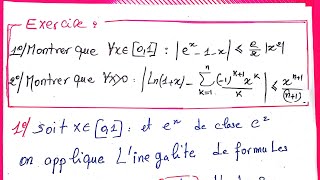 Exercice :
1°/ Montrer que ∀x∈[0,1] : |e^x - 1 - x| ≤ e/2 |x²|
2°/ Montrer que ∀x>0 : |Ln(1+x) - Σ_{k=1}^{n} (-1)^{k+1} x^k / k| ≤ x^{n+1}/(n+1)
1°/ soit x∈[0,1] : et e^x de clase c²
on applique L'inegalite de formules